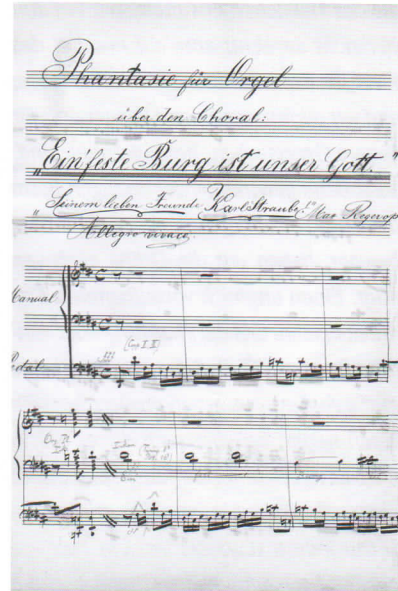 Phantasie für Orgel
über den Choral:
„Ein' feste Burg ist unser Gott."
„Seinem lieben Freunde Karl Straube." Max Reger op
Allegro vivace.
Manual
Pedal